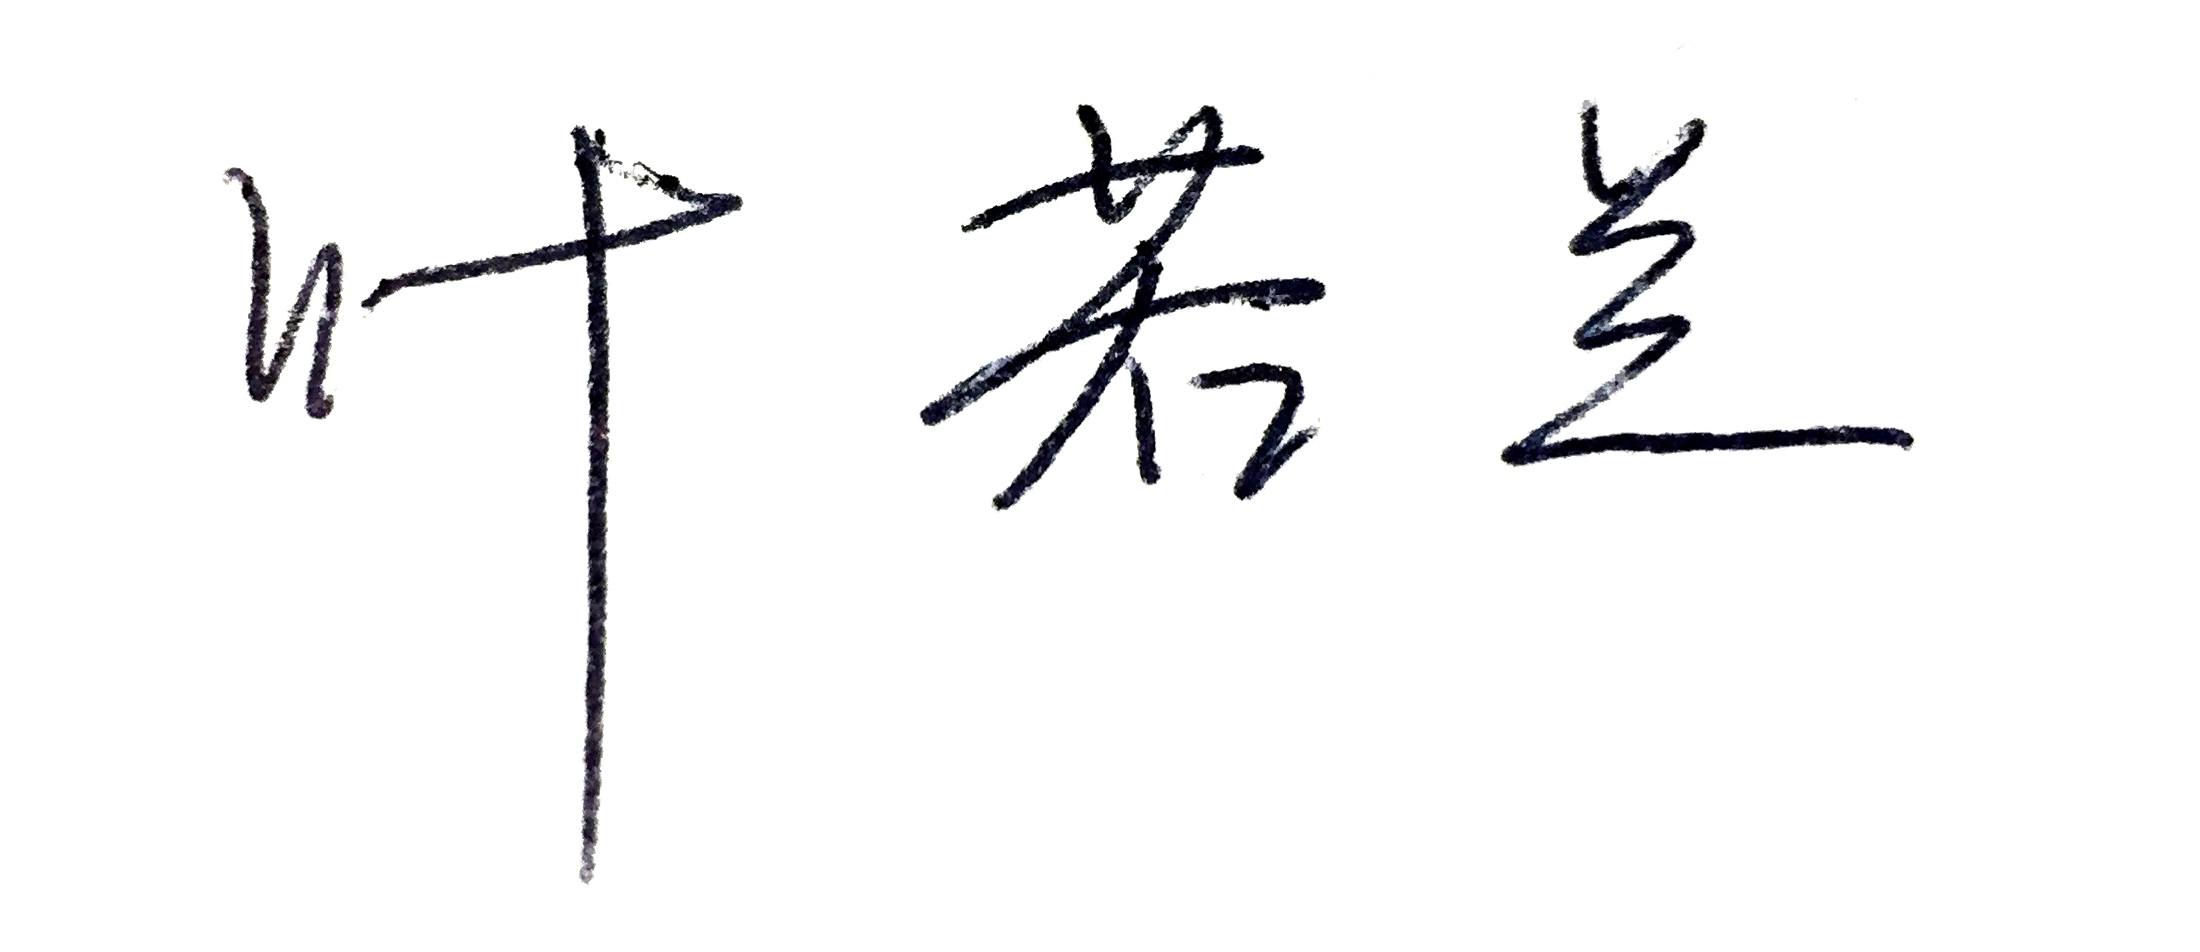 叶若兰